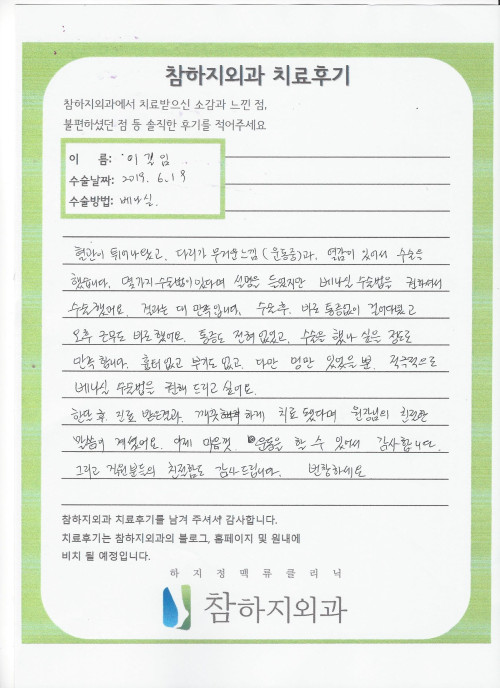 참하지외과 치료후기
참하지외과에서 치료받으신 소감과 느낀 점,
불편하셨던 점 등 솔직한 후기를 적어주세요
이 름: 이경임
수술날짜: 2019. 6. 19
수술방법: 베나실.
혈관이 튀어나왔고, 다리가 무거운느낌 (운동중)과, 열감이 있어서 수술을
했습니다. 몇가지 수술법이 있다며 설명을 들었지만 베나실 수술법을 권하셔서
수술했어요. 결과는 대 만족입니다. 수술후. 바로 통증없이 걸어다녔고
오후 근무도 바로 했어요. 통증도 전혀 없었고, 수술을 했나 싶은 정도로
만족합니다. 흉터 없고 부기도 없고. 다만 멍만 있었을 뿐. 적극적으로
베나실 수술법을 권해 드리고 싶어요.
한달 후. 진료 받은결과. 깨끗하게 치료 됐다며 원장님의 친절한
말씀이 계셨어요. 이제 마음껏 운동을 할 수 있어서 감사합니다.
그리고 직원분들의 친절함도 감사드립니다. 번창하세요.
참하지외과 치료후기를 남겨 주셔서 감사합니다.
치료후기는 참하지외과의 블로그, 홈페이지 및 원내에
비치 될 예정입니다.
하지정맥류클리닉
참하지외과